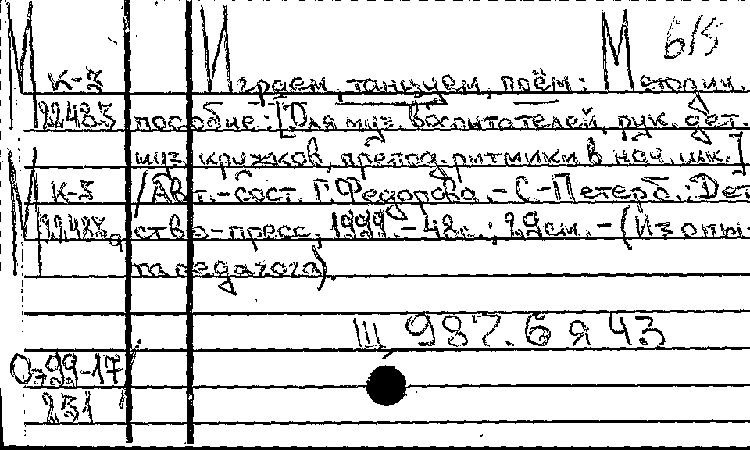 М И М б/5
К-3 Играем, танцуем, поём: Методич.
22483 пособие: [Для муз. воспитателей, рук. дет.
муз. кружков, препод. ритмики в нач. шк.]
М К-3 /Авт.-сост. Г. Федорова. - С-Петерб.: Дет
ство-пресс, 1999. - 48с.; 29см. - (Из опы-
та педагога).
Ш 987.6 я 43
99-17
231